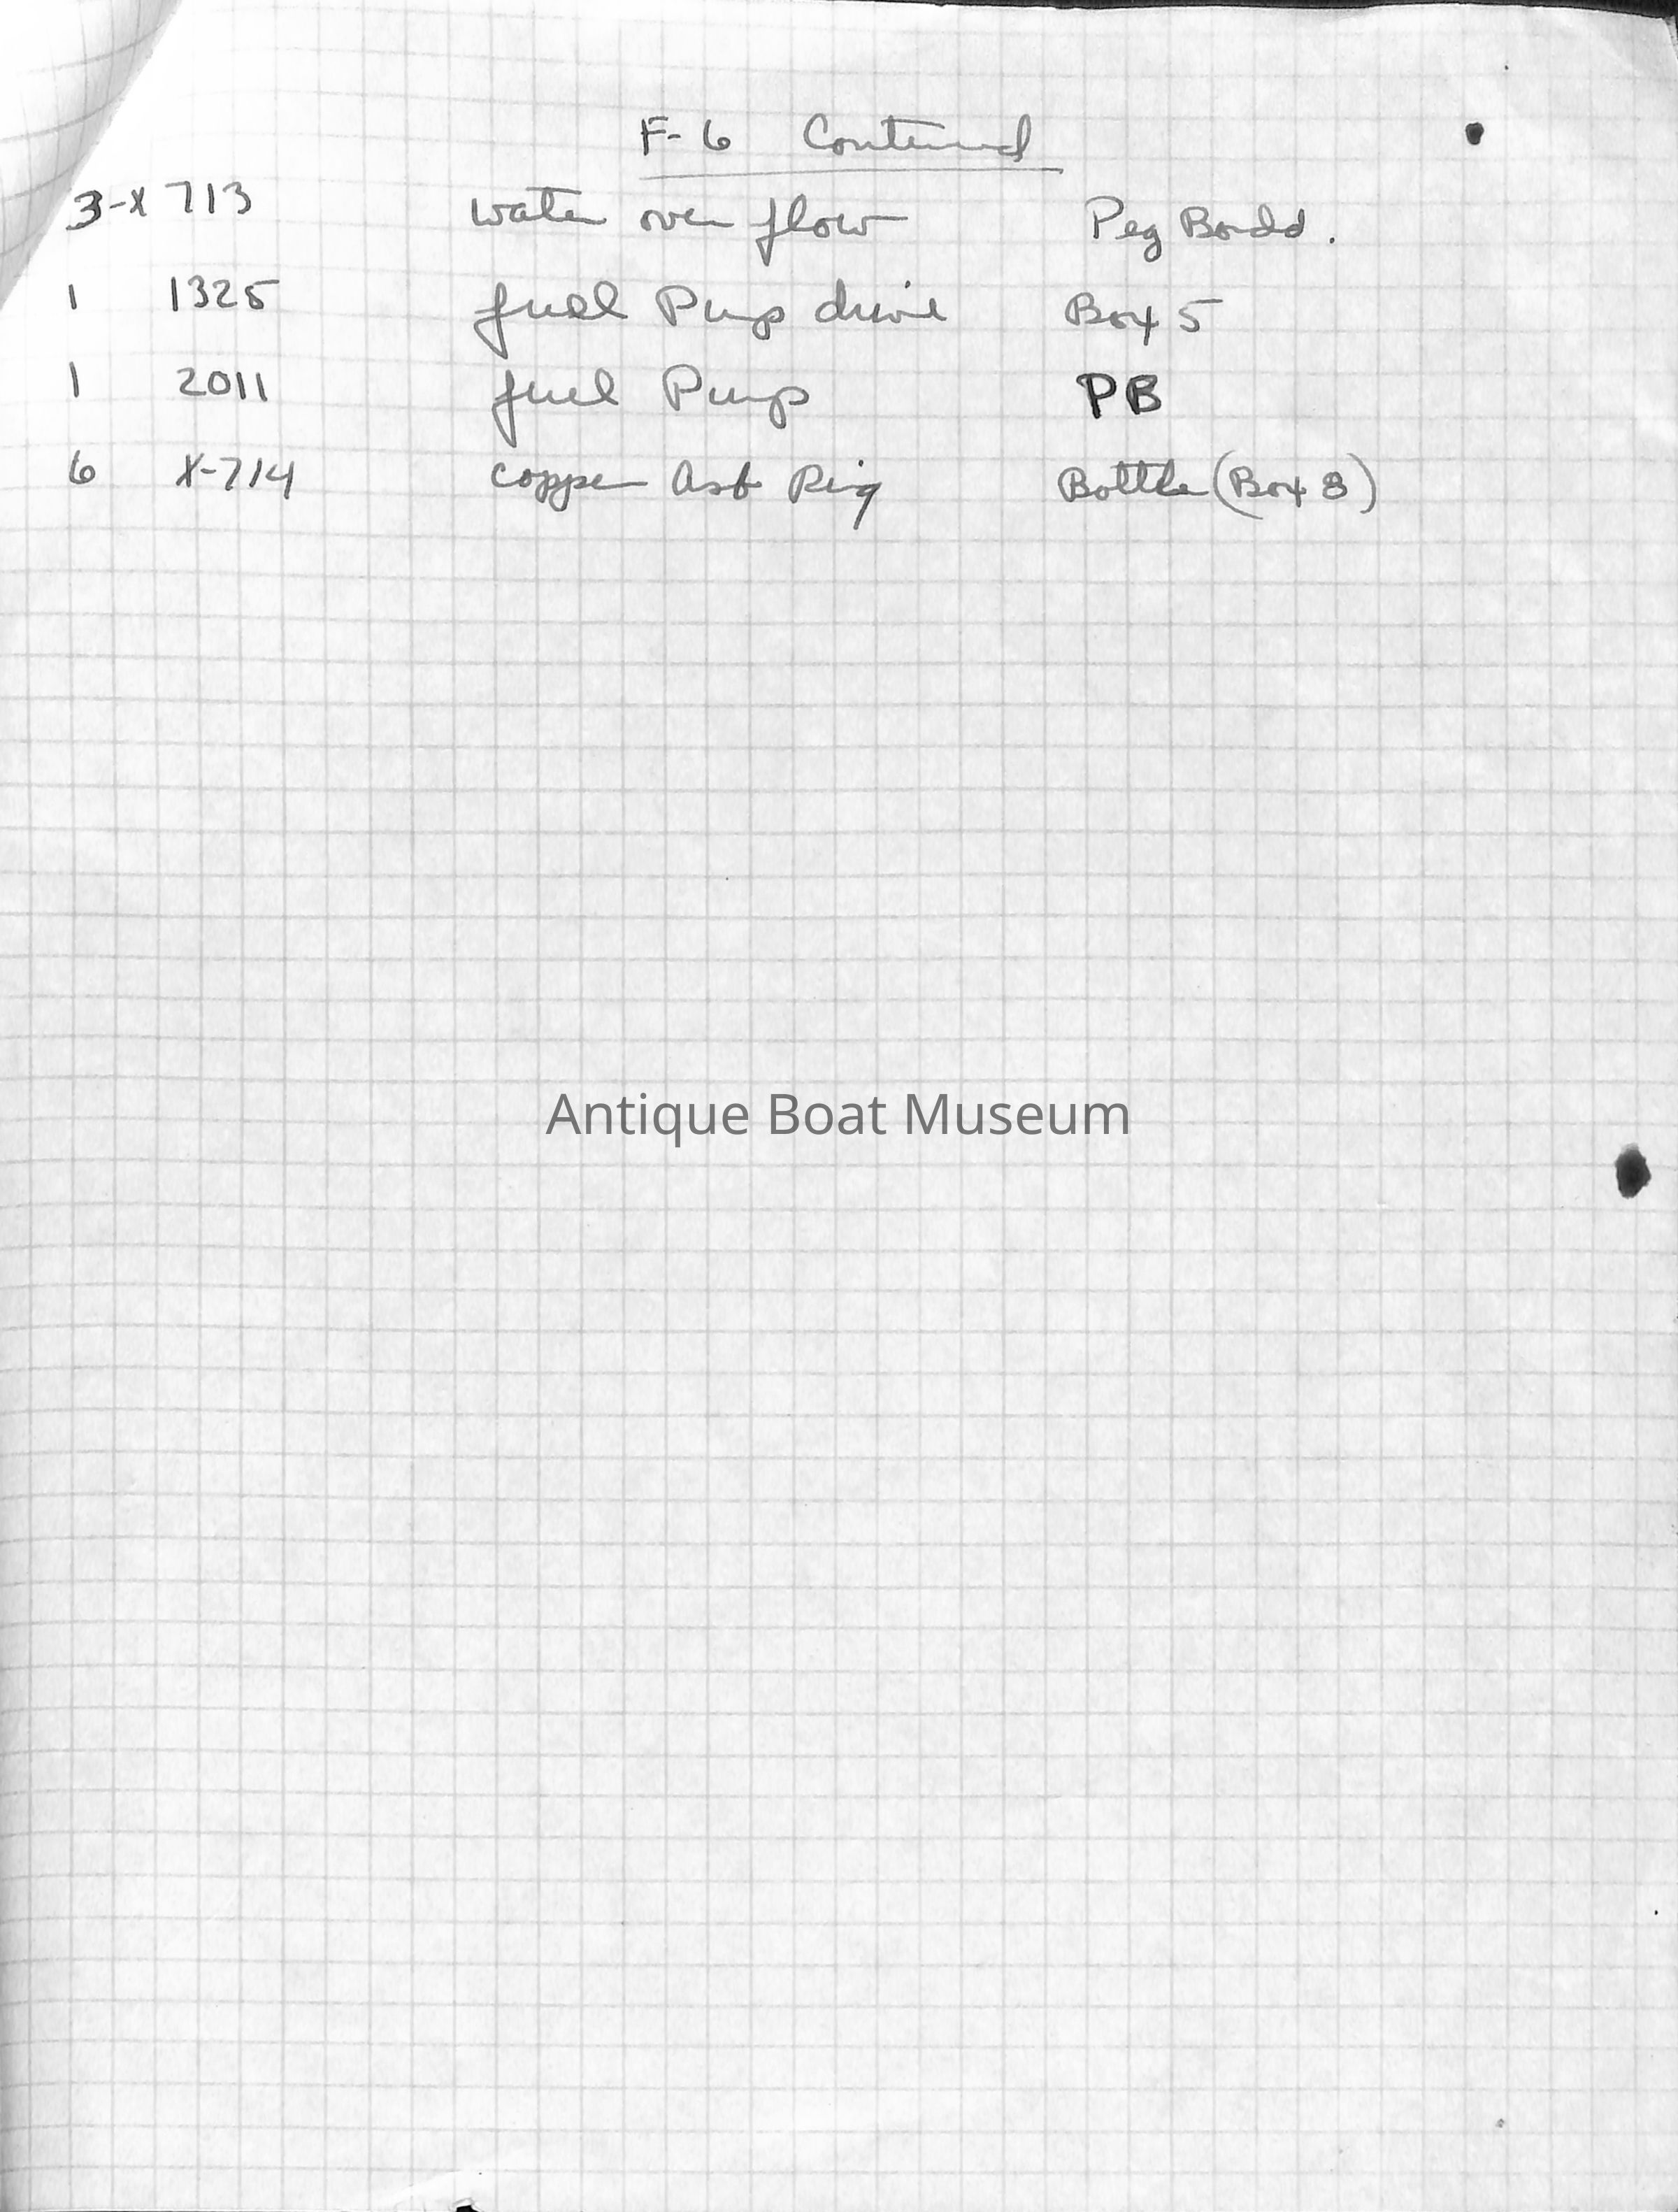 F-6 Contenued
3-X 713 water over flow Peg Bordd.
1 1325 fuel Pump drive Box 5
1 2011 fuel Pump PB
6 X-714 copper Asb Ring Bottle (Box 8)
Antique Boat Museum